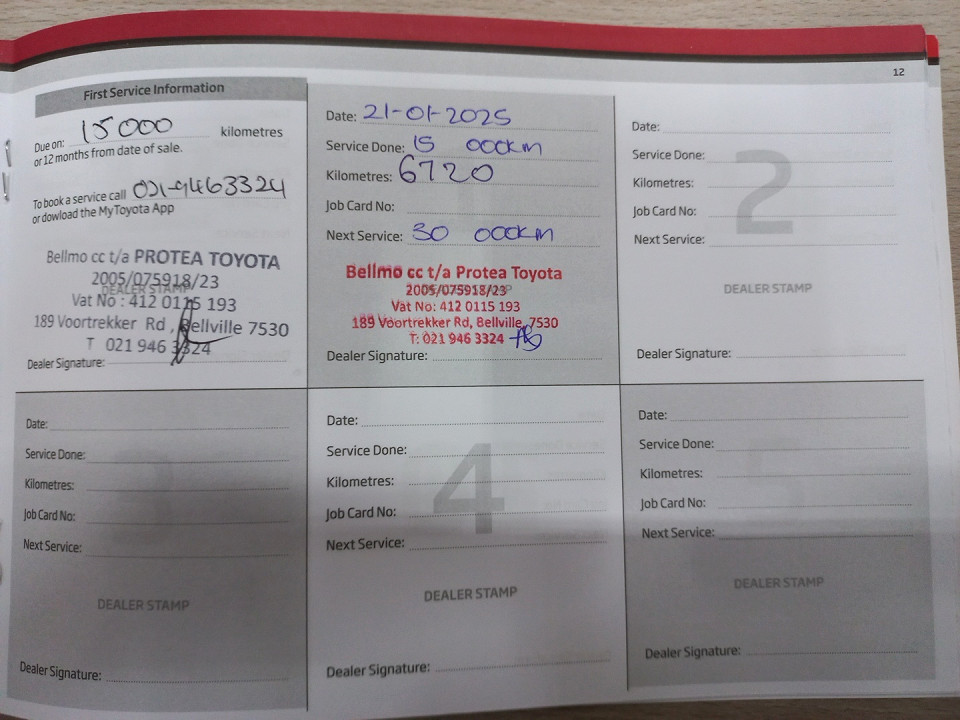 12
First Service Information
Due on: 15 000 kilometres
or 12 months from date of sale.
To book a service call 021-9463324
or dowload the MyToyota App
DEALER STAMP
Bellmo cc t/a PROTEA TOYOTA
2005/075918/23
Vat No : 412 0115 193
189 Voortrekker Rd , Bellville 7530
T 021 946 3324
Dealer Signature:
1
Date: 21-01-2025
Service Done: 15 000km
Kilometres: 6720
Job Card No:
Next Service: 30 000km
DEALER STAMP
Bellmo cc t/a Protea Toyota
2005/075918/23
Vat No: 412 0115 193
189 Voortrekker Rd, Bellville, 7530
T: 021 946 3324
Dealer Signature:
2
Date:
Service Done:
Kilometres:
Job Card No:
Next Service:
DEALER STAMP
Dealer Signature:
3
Date:
Service Done:
Kilometres:
Job Card No:
Next Service:
DEALER STAMP
Dealer Signature:
4
Date:
Service Done:
Kilometres:
Job Card No:
Next Service:
DEALER STAMP
Dealer Signature:
5
Date:
Service Done:
Kilometres:
Job Card No:
Next Service:
DEALER STAMP
Dealer Signature: